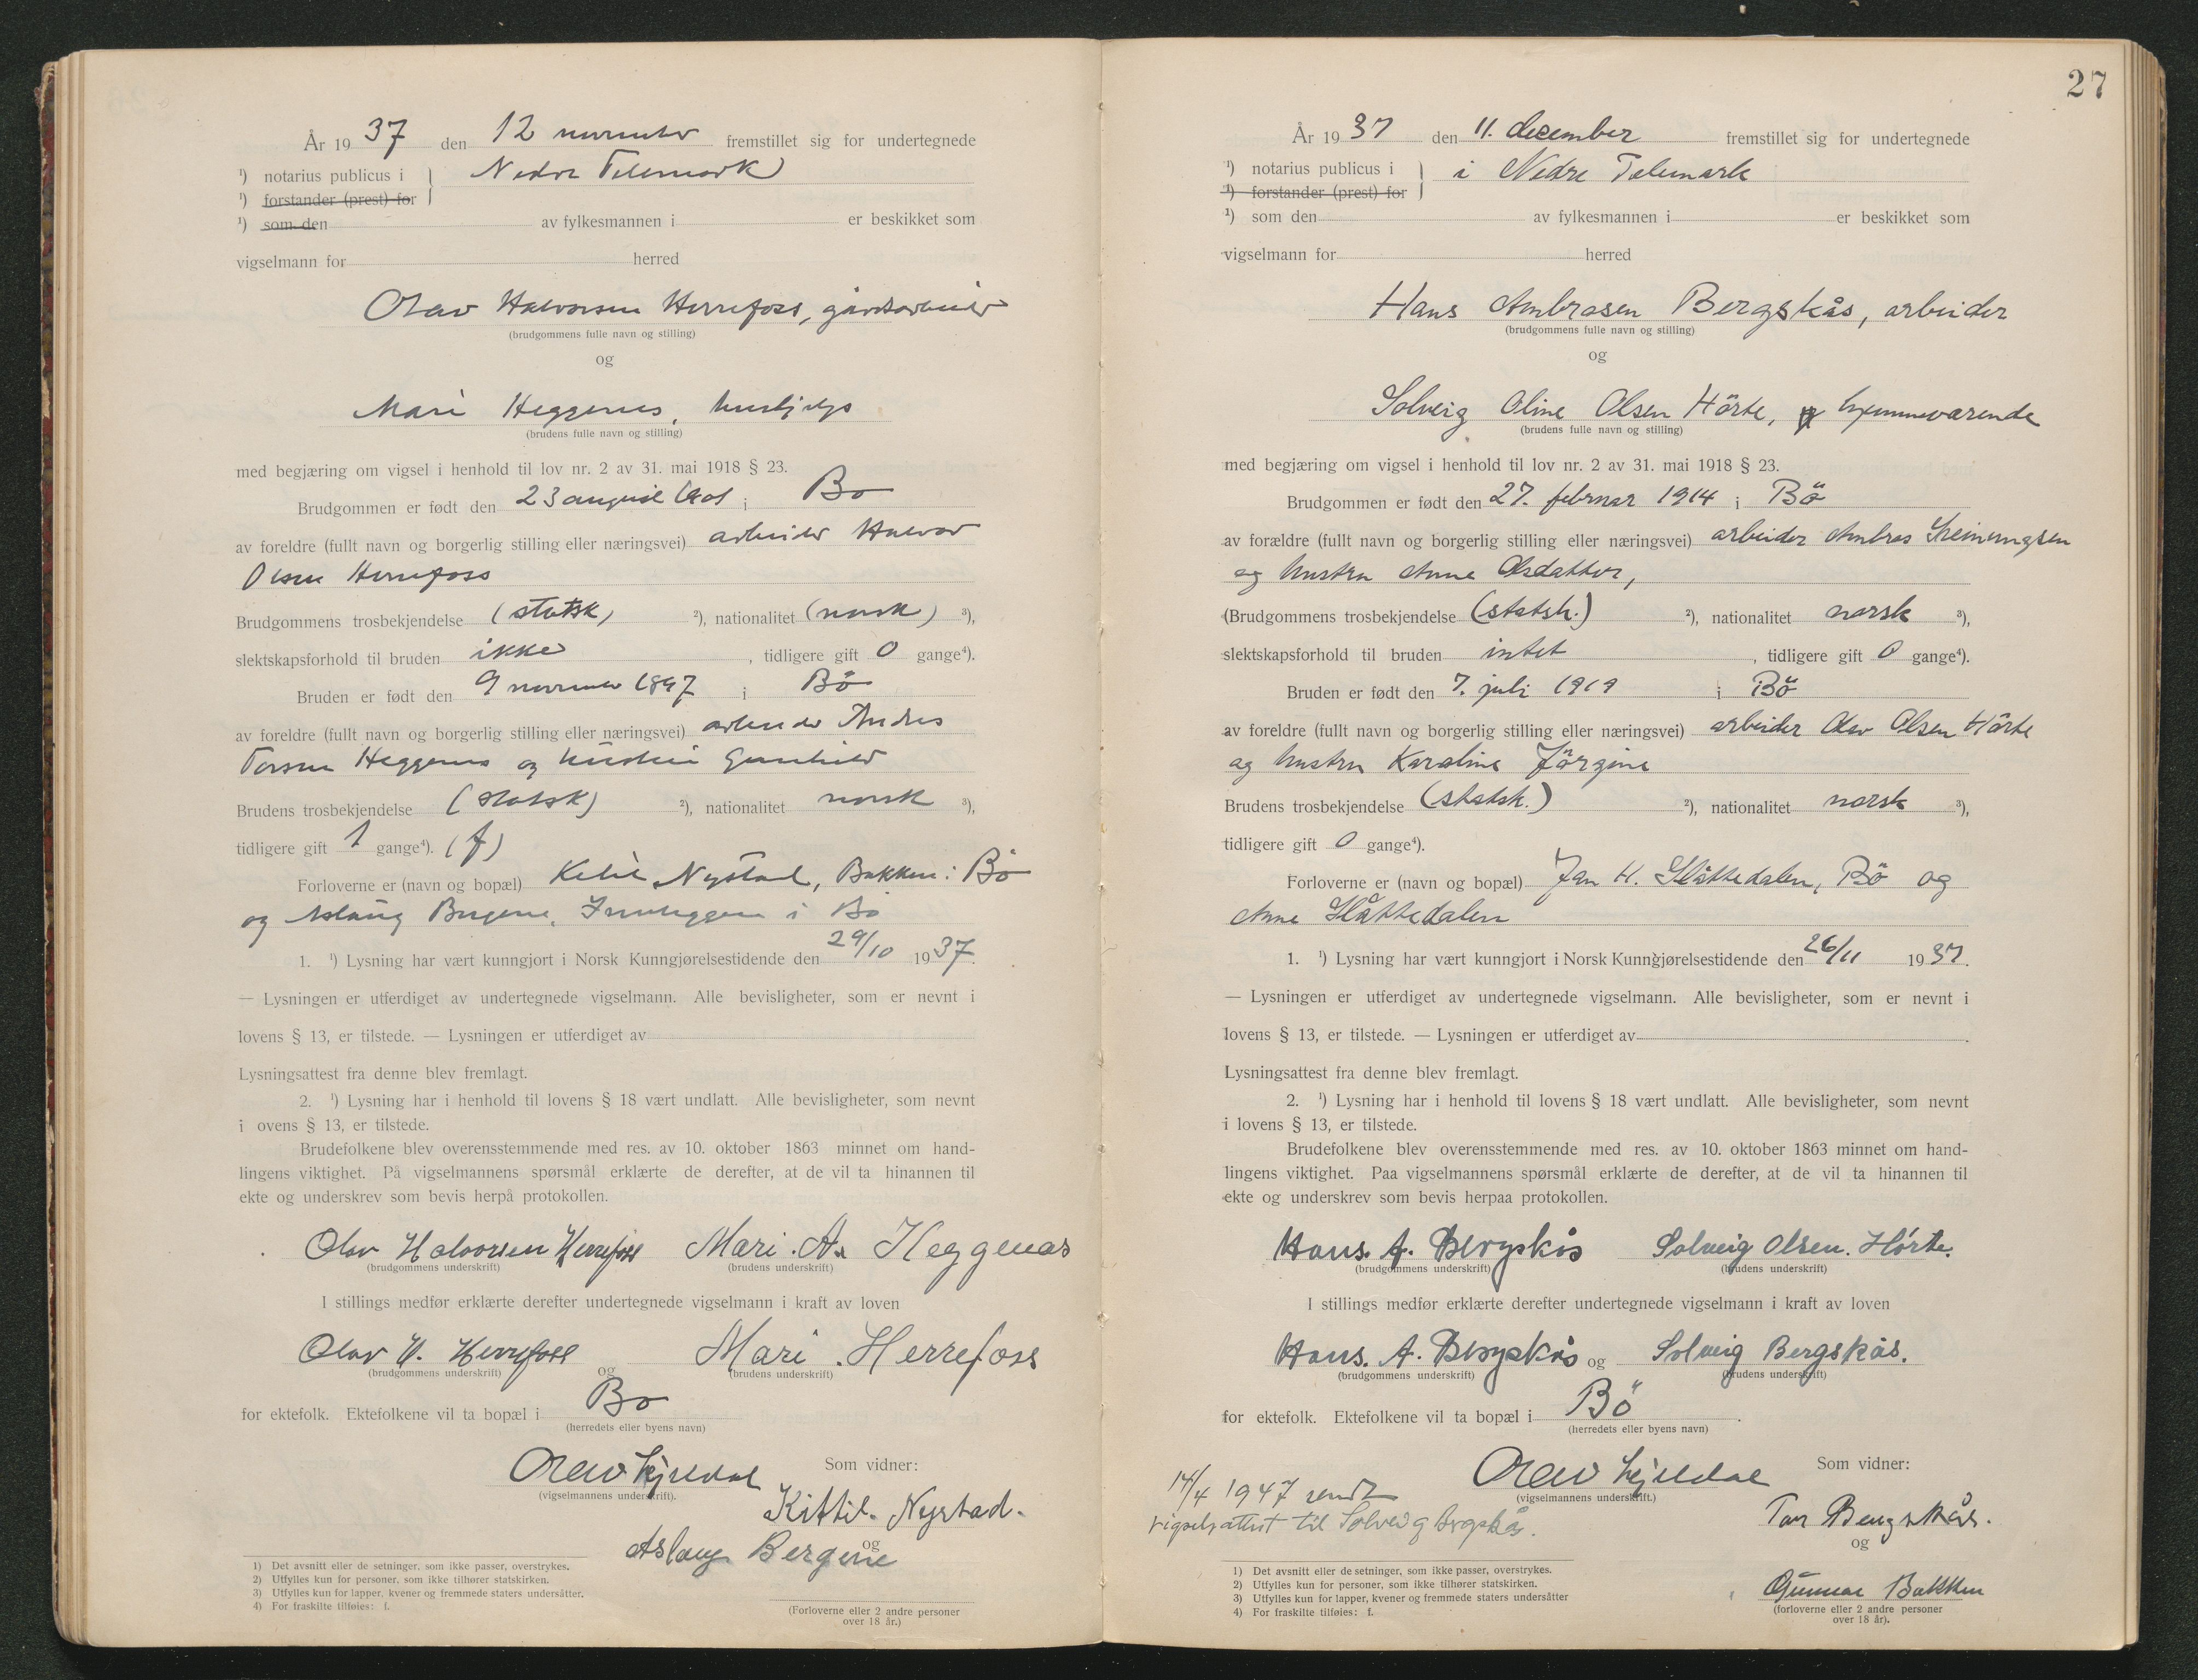 År 19 37 den 12 november fremstillet sig for undertegnede
¹) notarius publicus i } Nedre Telemark
¹) forstander (prest) for
¹) som den av fylkesmannen i er beskikket som
vigselmann for herred
Olav Halvorsen Herrefoss, gårdsarbeider
(brudgommens fulle navn og stilling)
og
Mari Heggenes, hushjelp
(brudens fulle navn og stilling)
med begjæring om vigsel i henhold til lov nr. 2 av 31. mai 1918 § 23.
Brudgommen er født den 23 august 1901 i Bø
av foreldre (fullt navn og borgerlig stilling eller næringsvei) arbeider Halvor
Olsen Herrefoss
Brudgommens trosbekjendelse (statsk) ²), nationalitet (norsk) ³),
slektskapsforhold til bruden ikke , tidligere gift 0 gange⁴).
Bruden er født den 9 november 1897 i Bö
av foreldre (fullt navn og borgerlig stilling eller næringsvei) arbeider Andres
Torsen Heggenes og hustru Gunhild
Brudens trosbekjendelse (statsk) ²), nationalitet norsk ³),
tidligere gift 1 gange⁴). (f)
Forloverne er (navn og bopæl) Nystad, Bakken i Bö
og Aslaug i Bø
1. ¹) Lysning har vært kunngjort i Norsk Kunngjørelsestidende den 29/10 1937.
— Lysningen er utferdiget av undertegnede vigselmann. Alle bevisligheter, som er nevnt i
lovens § 13, er tilstede. — Lysningen er utferdiget av
Lysningsattest fra denne blev fremlagt.
2. ¹) Lysning har i henhold til lovens § 18 vært undlatt. Alle bevisligheter, som nevnt
i ovens § 13, er tilstede.
Brudefolkene blev overensstemmende med res. av 10. oktober 1863 minnet om hand-
lingens viktighet. På vigselmannens spørsmål erklærte de derefter, at de vil ta hinannen til
ekte og underskrev som bevis herpå protokollen.
Olav Halvorsen Herrefoss Mari. A. Heggenas
(brudgommens underskrift) (brudens underskrift)
I stillings medfør erklærte derefter undertegnede vigselmann i kraft av loven
Olav H. Herrefoss og Mari . Herrefoss
(brudgommens underskrift) (brudens underskrift)
for ektefolk. Ektefolkene vil ta bopæl i Bø
(herredets eller byens navn)
Olav Lejlldal Som vidner:
(vigselmannens underskrift).
Kittil. Nystad.
og
Aslaug Bergene
1) Det avsnitt eller de setninger, som ikke passer, overstrykes.
2) Utfylles kun for personer, som ikke tilhører statskirken.
3) Utfylles kun for lapper, kvener og fremmede staters undersåtter.
4) For fraskilte tilføies: f.
(Forloverne eller 2 andre personer
over 18 år.)
27
År 19 37 den 11. december fremstillet sig for undertegnede
¹) notarius publicus i } i Nedre Telemark
¹) forstander (prest) for
¹) som den av fylkesmannen i er beskikket som
vigselmann for herred
Hans Ambrosen Bergskås, arbeider
(brudgommens fulle navn og stilling)
og
Solveig Oline Olsen Hörte, hjemmeværende
(brudens fulle navn og stilling)
med begjæring om vigsel i henhold til lov nr. 2 av 31. mai 1918 § 23.
Brudgommen er født den 27. februar 1914 i Bö
av forældre (fullt navn og borgerlig stilling eller næringsvei) arbeider Ambros
og hustru Anne Olsdatter,
(Brudgommens trosbekjendelse (statsk.) ²), nationalitet norsk ³),
slektskapsforhold til bruden intet , tidligere gift 0 gange⁴).
Bruden er født den 7. juli 1919 i Bö
av foreldre (fullt navn og borgerlig stilling eller næringsvei) arbeider Olav Olsen Hörte
og hustru Karoline Jörgine
Brudens trosbekjendelse (statsk.) ²), nationalitet norsk ³),
tidligere gift 0 gange⁴).
Forloverne er (navn og bopæl) Jan H. Slåttedalen, Bö og
Anne Slåttedalen
1. ¹) Lysning har vært kunngjort i Norsk Kunngjørelsestidende den 26/11 19 37.
— Lysningen er utferdiget av undertegnede vigselmann. Alle bevisligheter, som er nevnt i
lovens § 13, er tilstede. — Lysningen er utferdiget av
Lysningsattest fra denne blev fremlagt.
2. ¹) Lysning har i henhold til lovens § 18 vært undlatt. Alle bevisligheter, som nevnt
i lovens § 13, er tilstede.
Brudefolkene blev overensstemmende med res. av 10. oktober 1863 minnet om hand-
lingens viktighet. Paa vigselmannens spørsmål erklærte de derefter, at de vil ta hinannen til
ekte og underskrev som bevis herpaa protokollen.
Hans. A. Bergskås Solveig Olsen. Hörte.
(brudgommens underskrift) (brudens underskrift)
I stillings medfør erklærte derefter undertegnede vigselmann i kraft av loven
Hans. A. Bergskås og Solveig Bergskås.
(brudgommens underskrift) (brudens underskrift)
for ektefolk. Ektefolkene vil ta bopæl i Bö .
(herredets eller byens navn)
Olav Lejlldal Som vidner:
(vigselmannens underskrift.)
14/4 1947 sendt
vigselsattest til Solveig Bergskås.
Tor Bergskås.
og
Gunnar Bakken
1) Det avsnitt eller de setninger, som ikke passer, overstrykes.
2) Utfylles kun for personer, som ikke tilhører statskirken.
3) Utfylles kun for lapper, kvener og fremmede staters undersåtter
4) For fraskilte tilføies: f.
(forloverne eller 2 andre personer
over 18 år).